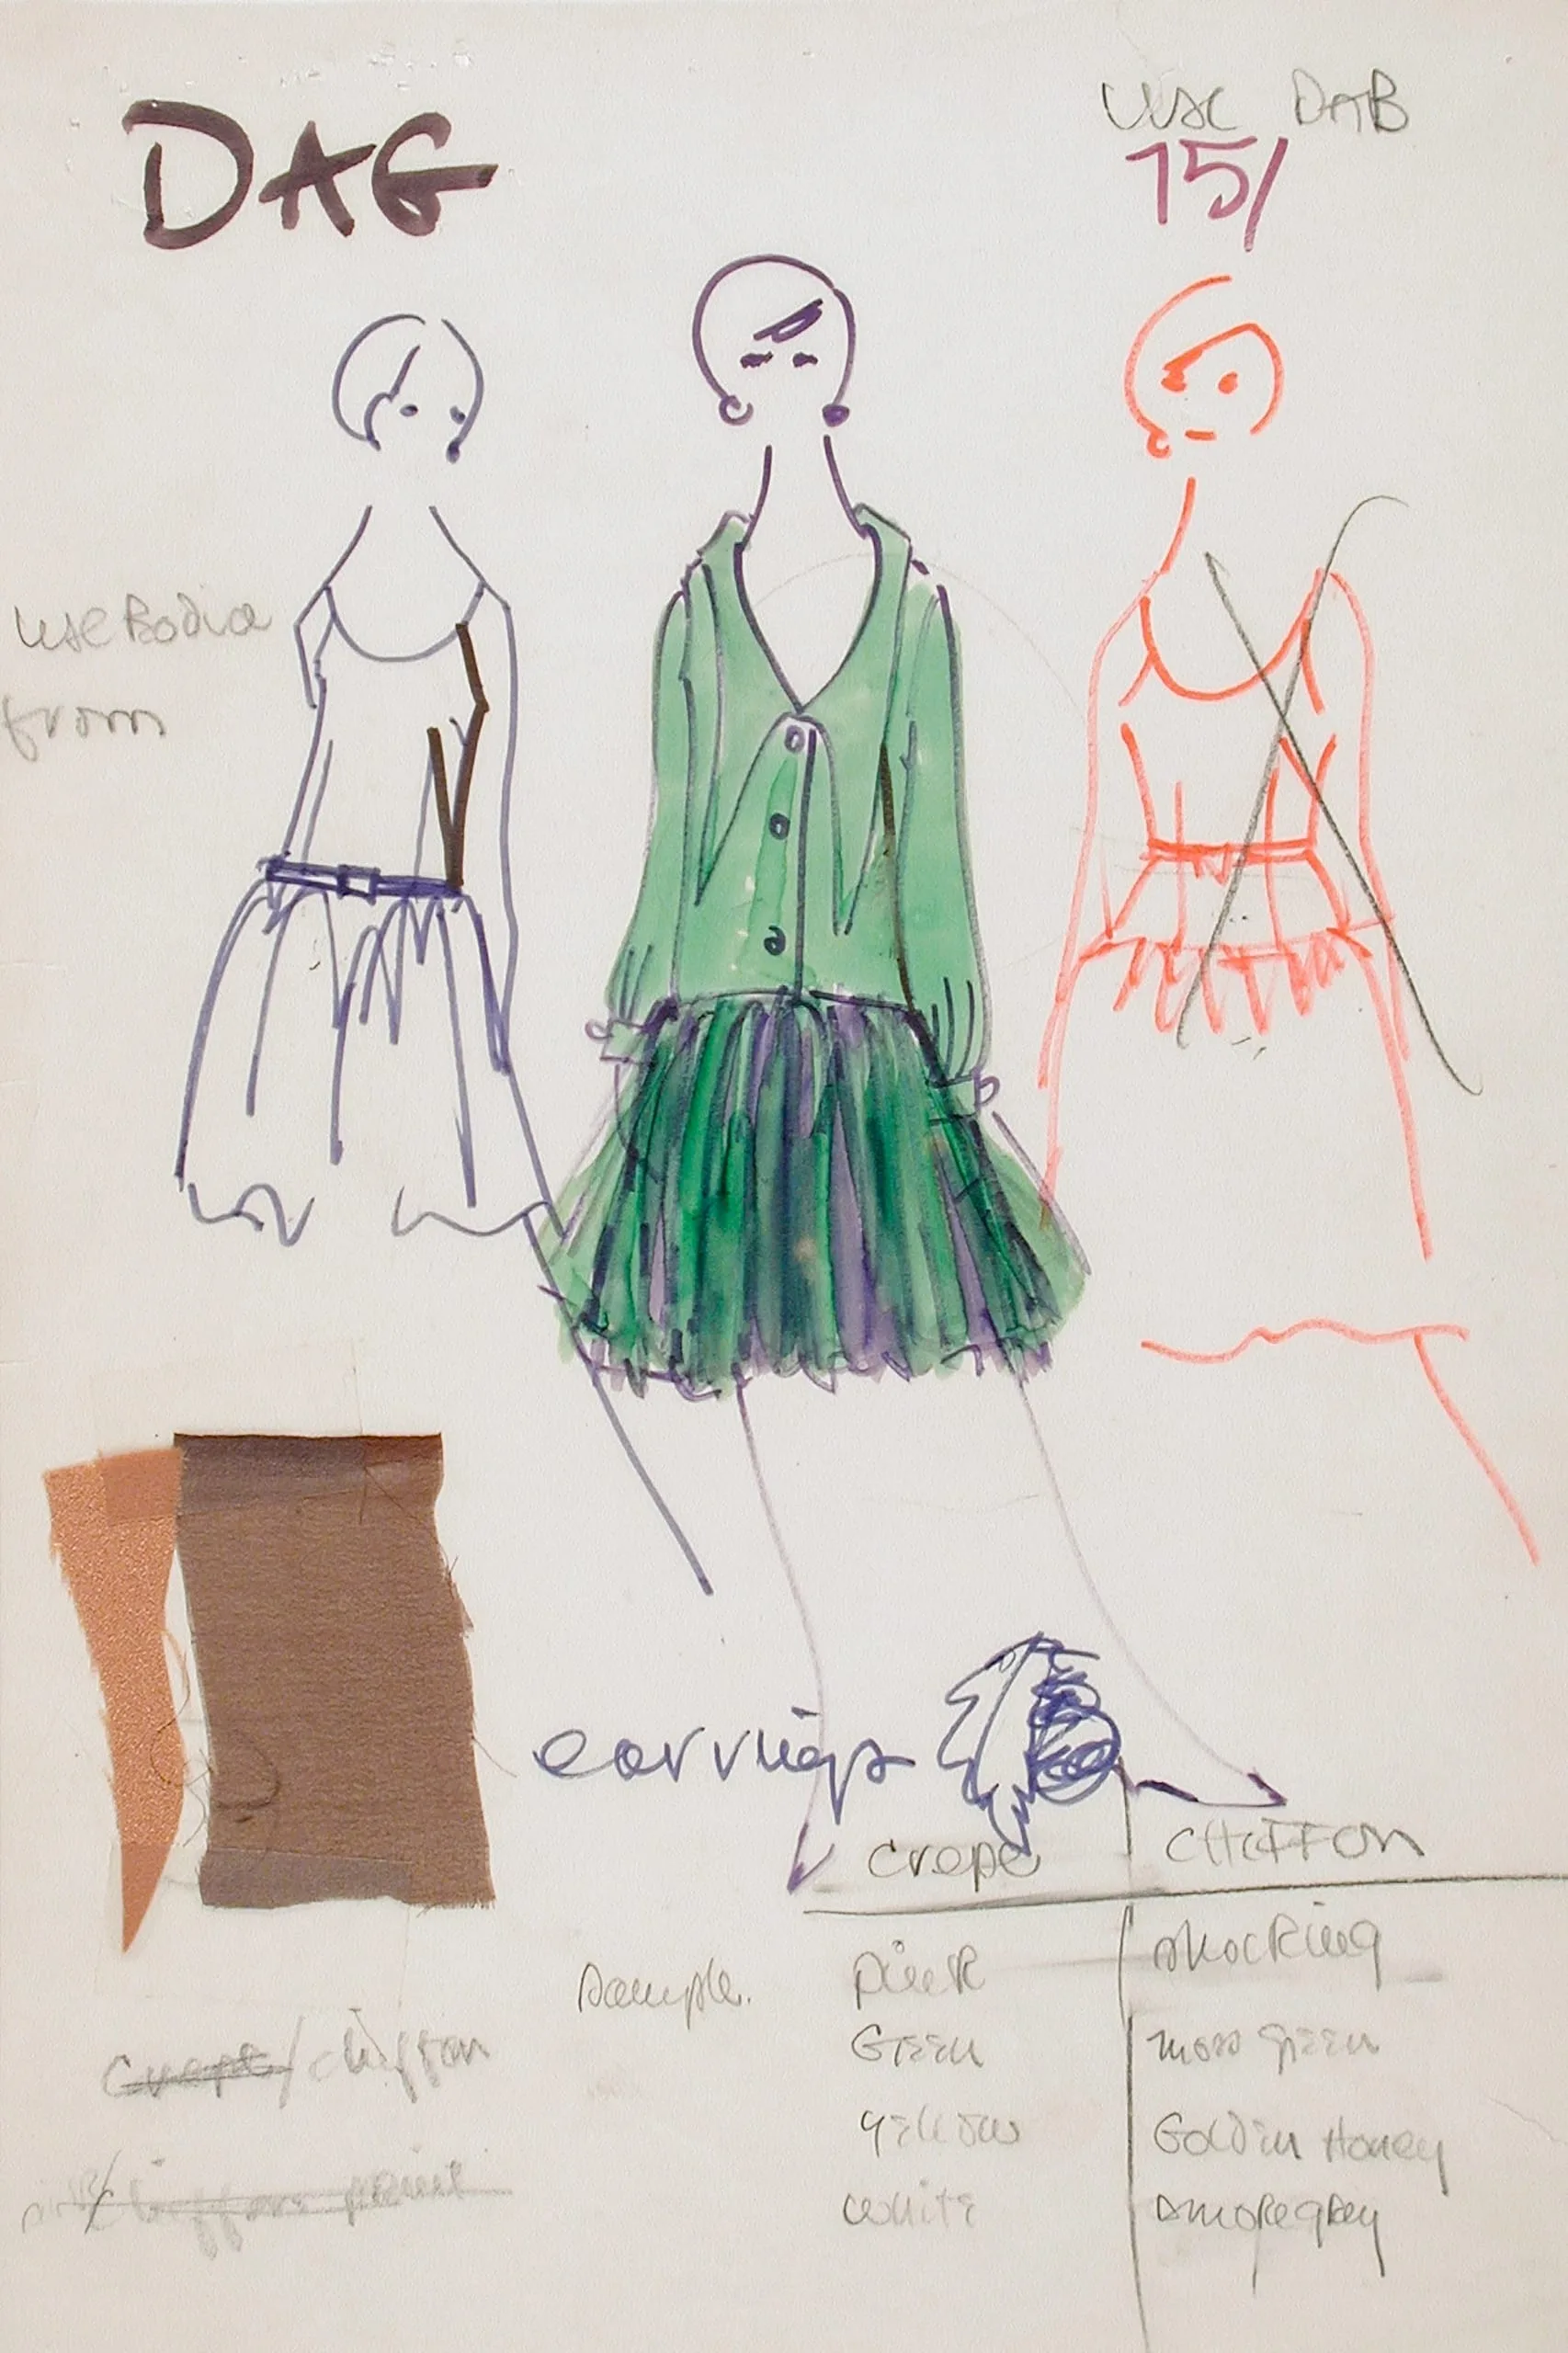 DAG
USE DAB
15/
Use Bodice
from
earrings
Crepe CHIFFON
Sample. Pink shocking
Green moss green
Yellow Golden Honey
White smokegrey
Crepe/chiffon
Chiffon print